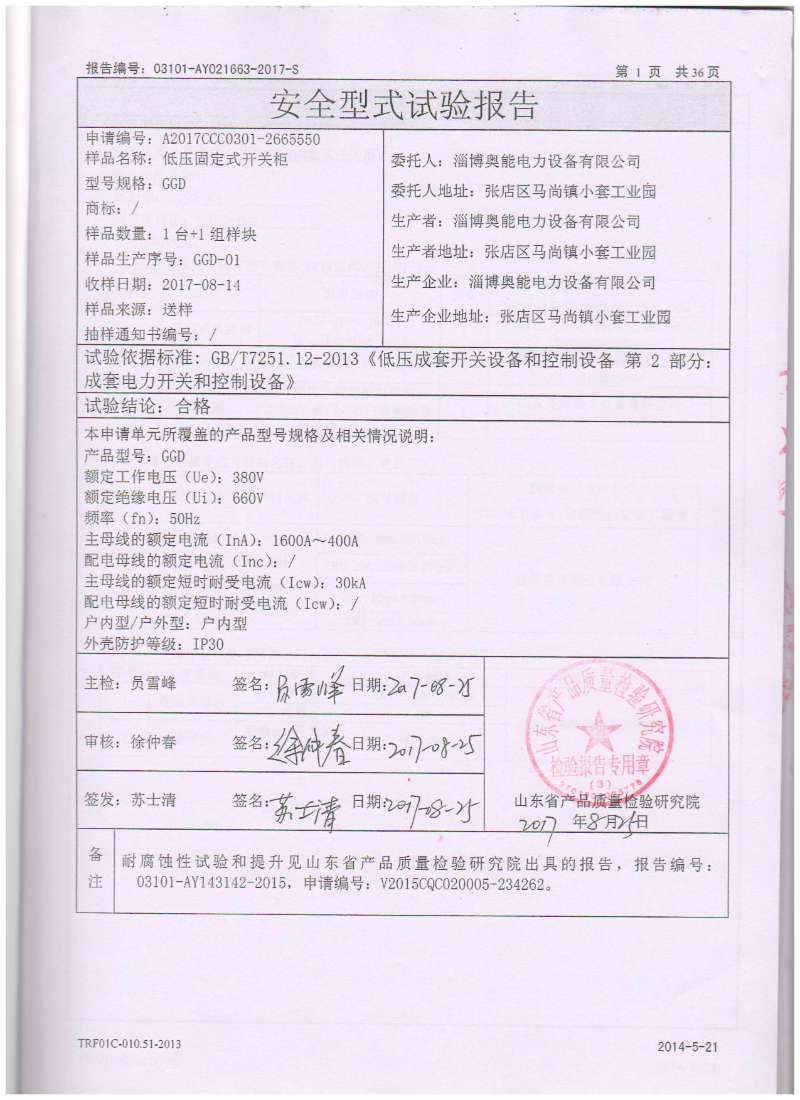 报告编号：03101-AY021663-2017-S
第 1 页 共36页
安全型式试验报告
申请编号：A2017CCC0301-2665550
样品名称：低压固定式开关柜
型号规格：GGD
商标：/
样品数量：1台+1组样块
样品生产序号：GGD-01
收样日期：2017-08-14
样品来源：送样
抽样通知书编号：/
委托人：淄博奥能电力设备有限公司
委托人地址：张店区马尚镇小套工业园
生产者：淄博奥能电力设备有限公司
生产者地址：张店区马尚镇小套工业园
生产企业：淄博奥能电力设备有限公司
生产企业地址：张店区马尚镇小套工业园
试验依据标准：GB/T7251.12-2013《低压成套开关设备和控制设备 第 2 部分：
成套电力开关和控制设备》
试验结论：合格
本申请单元所覆盖的产品型号规格及相关情况说明：
产品型号：GGD
额定工作电压（Ue）：380V
额定绝缘电压（Ui）：660V
频率（fn）：50Hz
主母线的额定电流（InA）：1600A～400A
配电母线的额定电流（Inc）：/
主母线的额定短时耐受电流（Icw）：30kA
配电母线的额定短时耐受电流（Icw）：/
户内型/户外型：户内型
外壳防护等级：IP30
主检：员雪峰 签名：员雪峰 日期：2017-08-25
审核：徐仲春 签名：徐仲春 日期：2017-08-25
签发：苏士清 签名：苏士清 日期：2017-08-25
山东省产品质量检验研究院
检验报告专用章
（3）
山东省产品质量检验研究院
2017 年8月25日
备注
耐腐蚀性试验和提升见山东省产品质量检验研究院出具的报告，报告编号：
03101-AY143142-2015，申请编号：V2015CQC020005-234262。
TRF01C-010.51-2013
2014-5-21